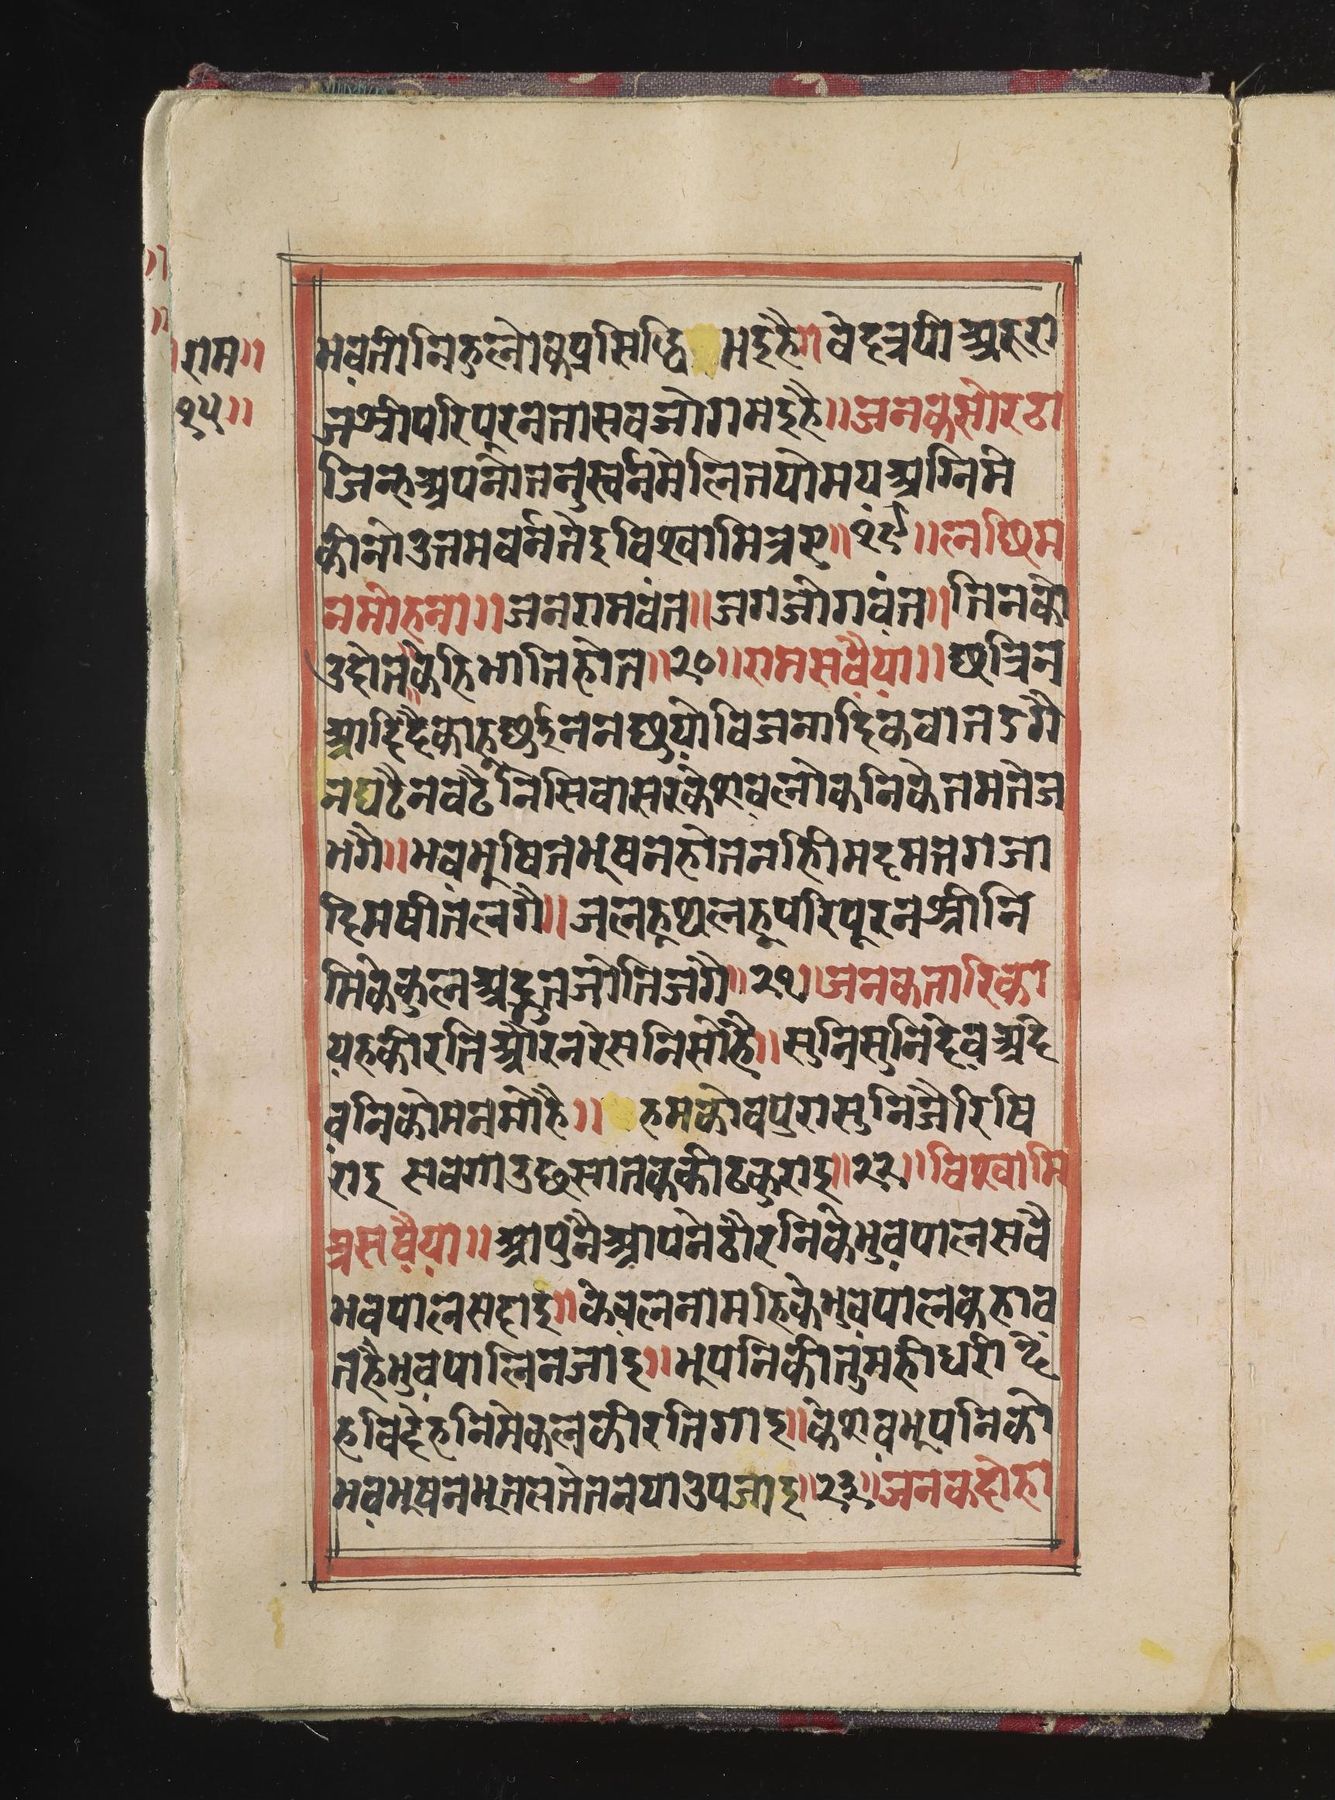 राम॥
१५॥
भवतीनितुलोकप्रसिद्धि भइहै॥ वेदत्रयीअरुरा
जश्रीपरिपूरनतासबजोगमइहै॥ जनकसोरठा
जिन्हअपनोतनुस्वर्नमेलितपोमयअग्निमे
कीनोउतमवर्नतेइविश्वामित्रए॥१९॥ लछिम
नमोहना॥ जनरामवंत॥ जगजोगवंत॥ तिनको
उदोतकेहिभातिहोत॥२०॥ रामसवैया॥ छत्रिन
आदिदैकाहूछुईननछुयोविजनादिकवातडगै
नघटैनवढैनिसिवासरकेशवलोकनिकेतमतेज
भगै॥ भवभूषितभूषनहोतनहीमदमतगजा
दिमषीतलगै॥ जलहूथलहूपरिपूरनश्रीनि
मिकेकुलअद्भुतजोतिजगै॥२१॥ जनकतारिका
यहकीरतिऔरनरेसनिसोहै॥ सुनिसुनिदेवअदे
वनिकोमनमोहै॥ हमकोवपुरासुनिजैरिषि
राइ सबगाउछसातककीठकुराइ॥२२॥ विश्वामि
त्रसवैया॥ आपुनैआपनेठौरनिकेभुवपालसवै
भवपालसदाइ॥ केवलनामहिकेभुवपालकहाव
तहैभुवपालिनजाइ॥ भूपनिकीतुमहीधरीदे
हविदेहनिमेकलकीरतिगाइ॥ केशवभूपनिको
भवभूषनभूतलतेतनयाउपजाइ॥२३॥ जनकदोहा